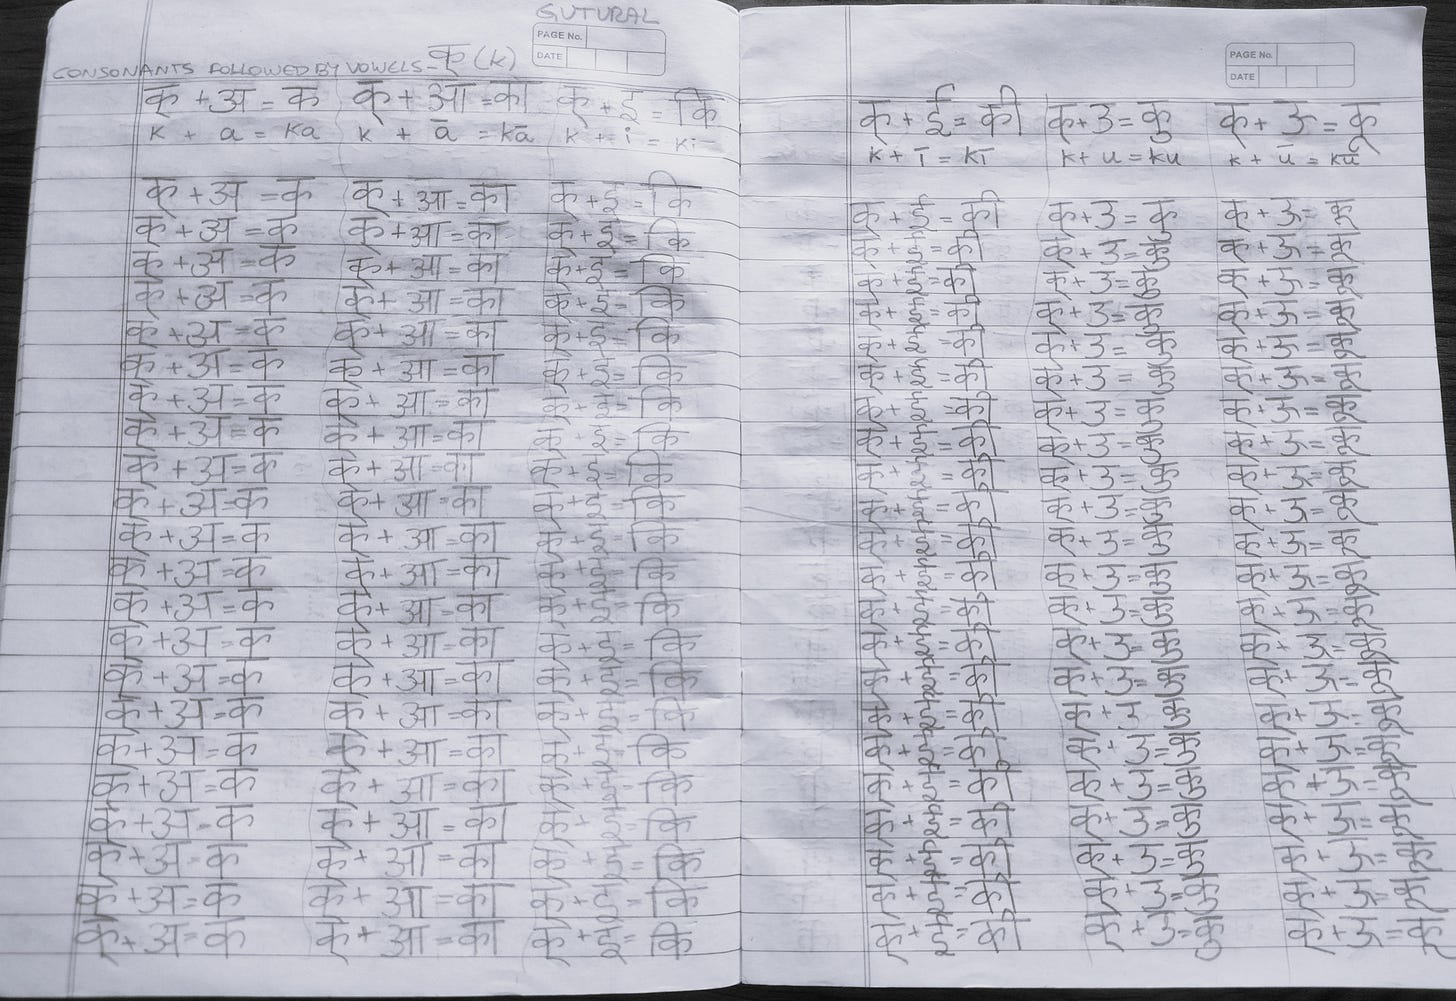 GUTURAL
PAGE No.
DATE
CONSONANTS FOLLOWED BY VOWELS - क् (k)
क् + अ = क क् + आ = का क् + इ = कि
k + a = ka k + ā = kā k + i = ki
क् + अ = क क् + आ = का क् + इ = कि
क् + अ = क क् + आ = का क् + इ = कि
क् + अ = क क् + आ = का क् + इ = कि
क् + अ = क क् + आ = का क् + इ = कि
क् + अ = क क् + आ = का क् + इ = कि
क् + अ = क क् + आ = का क् + इ = कि
क् + अ = क क् + आ = का क् + इ = कि
क् + अ = क क् + आ = का क् + इ = कि
क् + अ = क क् + आ = का क् + इ = कि
क् + अ = क क् + आ = का क् + इ = कि
क् + अ = क क् + आ = का क् + इ = कि
क् + अ = क क् + आ = का क् + इ = कि
क् + अ = क क् + आ = का क् + इ = कि
क् + अ = क क् + आ = का क् + इ = कि
क् + अ = क क् + आ = का क् + इ = कि
क् + अ = क क् + आ = का क् + इ = कि
क् + अ = क क् + आ = का क् + इ = कि
क् + अ = क क् + आ = का क् + इ = कि
क् + अ = क क् + आ = का क् + इ = कि
क् + अ = क क् + आ = का क् + इ = कि
क् + अ = क क् + आ = का क् + इ = कि
क् + अ = क क् + आ = का क् + इ = कि
PAGE No.
DATE
क् + ई = की क् + उ = कु क् + ऊ = कू
k + ī = kī k + u = ku k + ū = kū
क् + ई = की क् + उ = कु क् + ऊ = कू
क् + ई = की क् + उ = कु क् + ऊ = कू
क् + ई = की क् + उ = कु क् + ऊ = कू
क् + ई = की क् + उ = कु क् + ऊ = कू
क् + ई = की क् + उ = कु क् + ऊ = कू
क् + ई = की क् + उ = कु क् + ऊ = कू
क् + ई = की क् + उ = कु क् + ऊ = कू
क् + ई = की क् + उ = कु क् + ऊ = कू
क् + ई = की क् + उ = कु क् + ऊ = कू
क् + ई = की क् + उ = कु क् + ऊ = कू
क् + ई = की क् + उ = कु क् + ऊ = कू
क् + ई = की क् + उ = कु क् + ऊ = कू
क् + ई = की क् + उ = कु क् + ऊ = कू
क् + ई = की क् + उ = कु क् + ऊ = कू
क् + ई = की क् + उ = कु क् + ऊ = कू
क् + ई = की क् + उ = कु क् + ऊ = कू
क् + ई = की क् + उ = कु क् + ऊ = कू
क् + ई = की क् + उ = कु क् + ऊ = कू
क् + ई = की क् + उ = कु क् + ऊ = कू
क् + ई = की क् + उ = कु क् + ऊ = कू
क् + ई = की क् + उ = कु क् + ऊ = कू
क् + ई = की क् + उ = कु क् + ऊ = कू